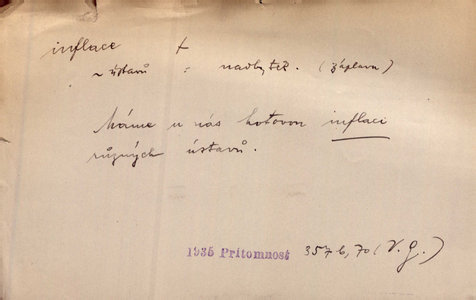 inflace +
~ ústavů : nadbytek. (záplava)
Máme u nás hotovou inflaci
různých ústavů.
1935 Přítomnost 357 b, 70 (V. G.)